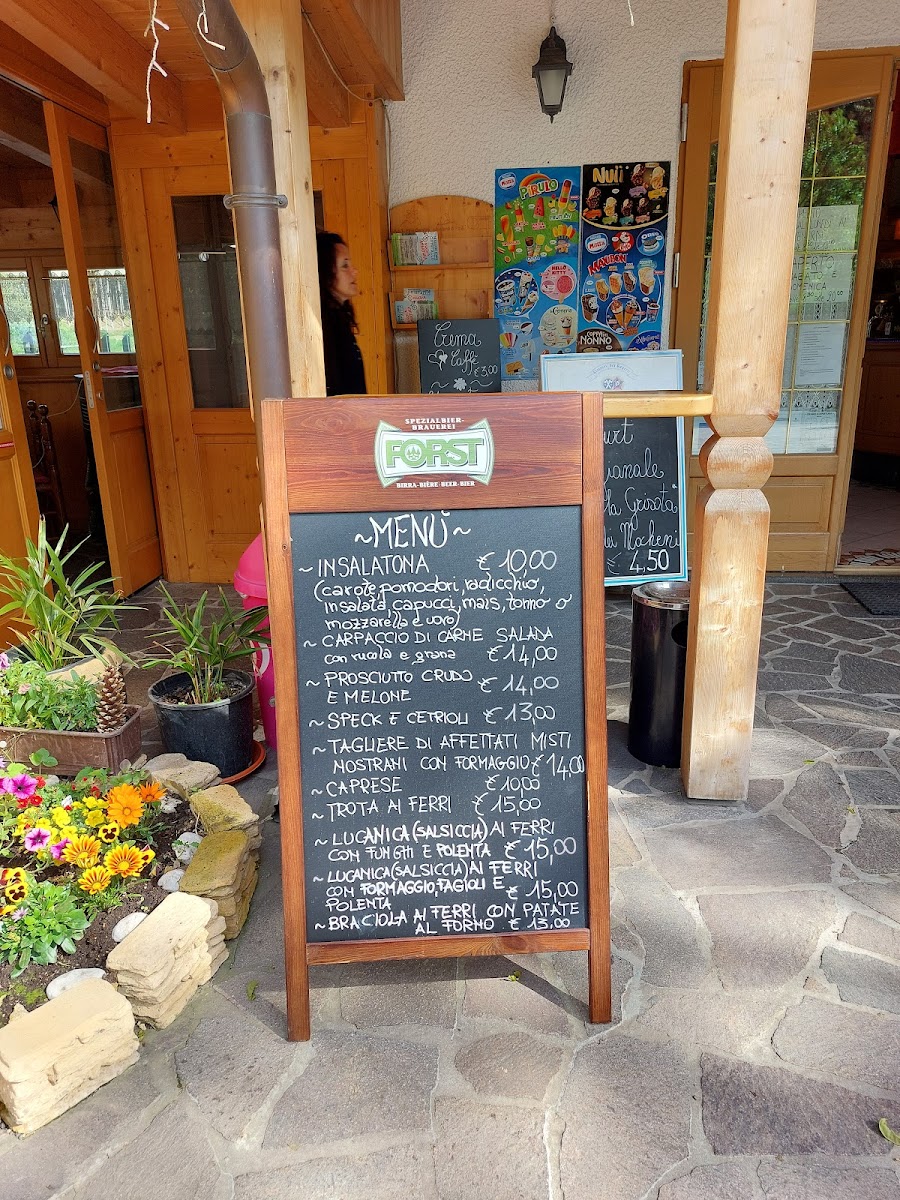 PIRULO
Nuii
MAXIBON
OREO
HELLO KITTY
COPPA DEL NONNO
Crema
Caffè
€3,00
SPEZIALBIER-
BRAUEREI
FORST
BIRRA-BIÈRE-BEER-BIER
~MENÙ~
~INSALATONA €10,00
(carote, pomodori, radicchio,
insalata, capucci, mais, tonno o
mozzarella e uovo)
~ CARPACCIO DI CARNE SALADA
con rucola e grana €14,00
~ PROSCIUTTO CRUDO
E MELONE €14,00
~ SPECK E CETRIOLI €13,00
~ TAGLIERE DI AFFETTATI MISTI
NOSTRANI CON FORMAGGIO €14,00
~ CAPRESE €10,00
~ TROTA AI FERRI €15,00
~ LUCANICA (SALSICCIA) AI FERRI
CON FUNGHI E POLENTA €15,00
~ LUCANICA (SALSICCIA) AI FERRI
CON FORMAGGIO, FAGIOLI E
POLENTA €15,00
~ BRACIOLA AI FERRI CON PATATE
AL FORNO €13,00
urt
gianale
lla Grisota
ei Mocheni
€ 4,50